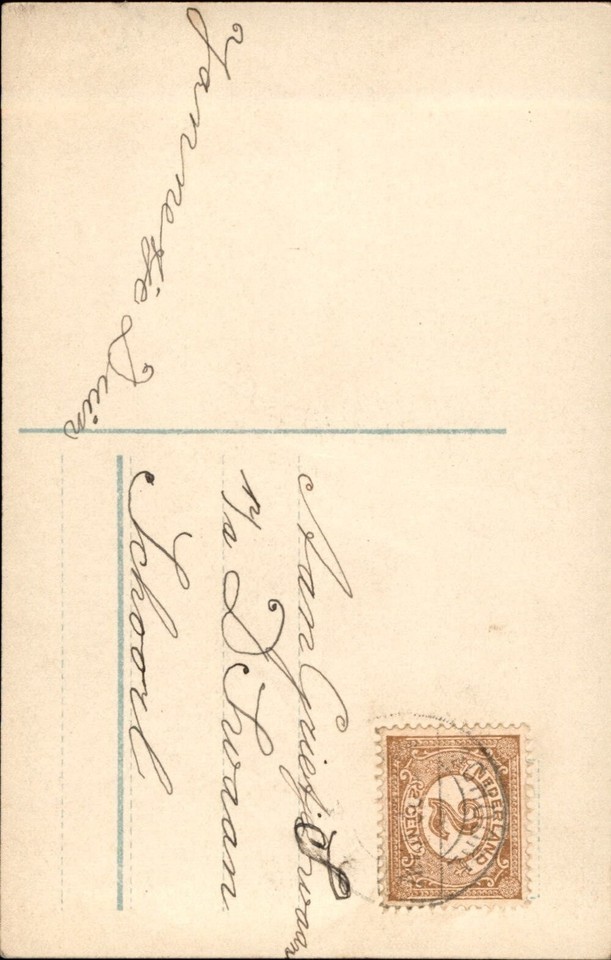 Jannetje Duin
Aan Grietje Swaan
p/a D Swaan
Schoorl
NEDERLAND
2
2 CENT